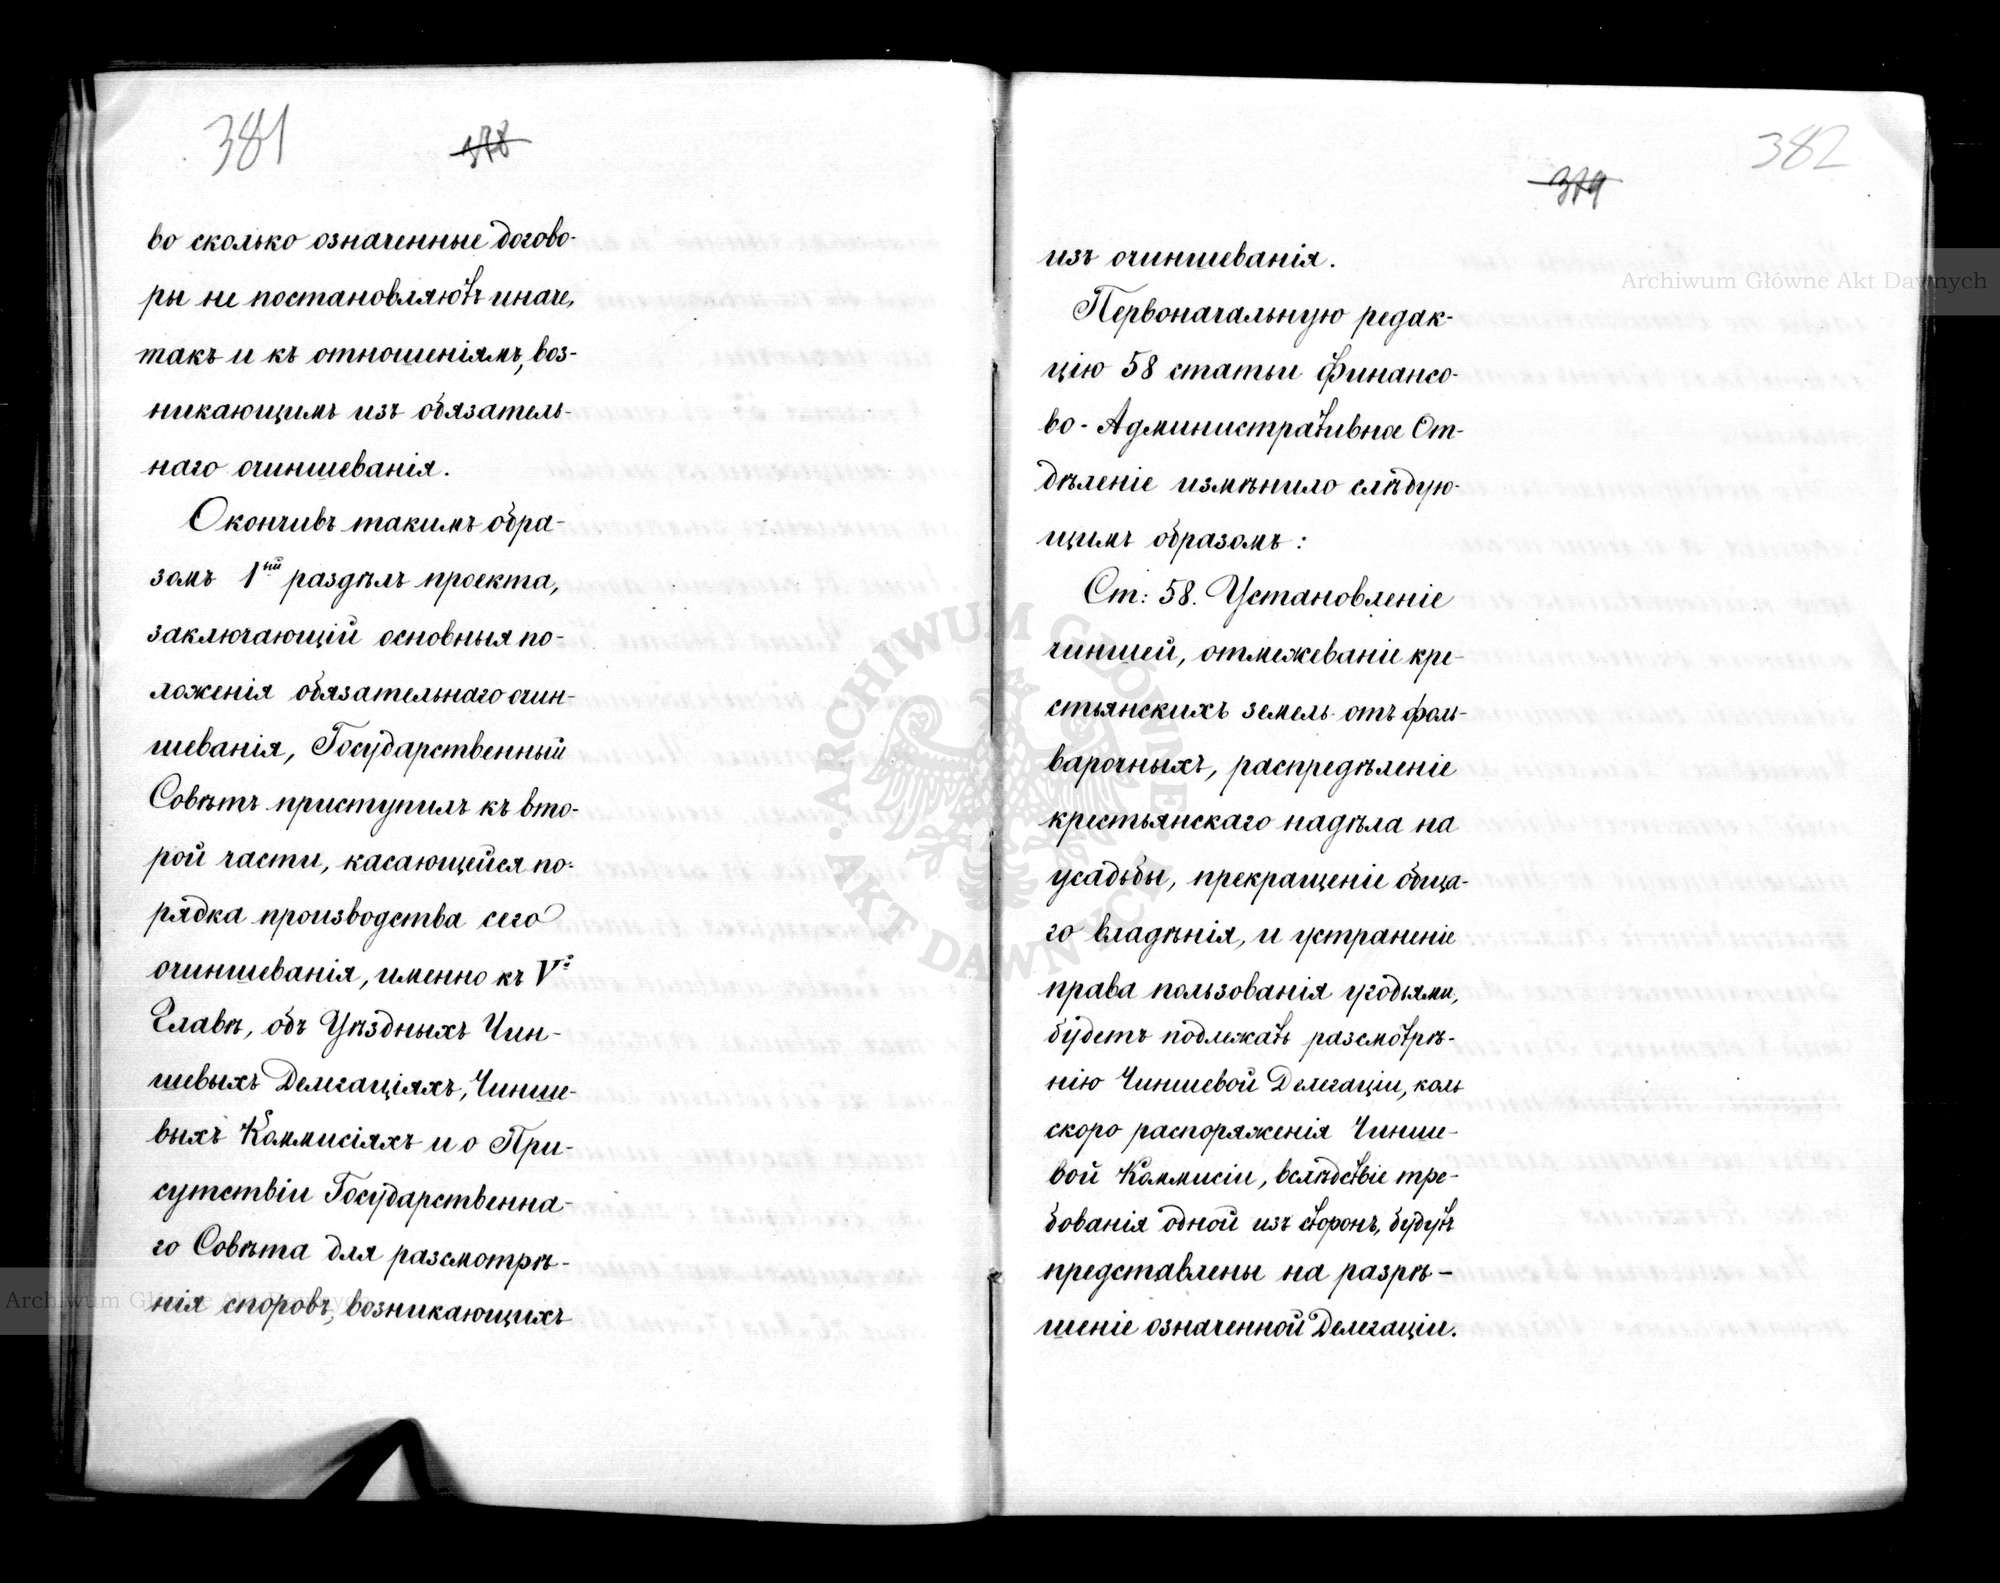 381
378
во сколько означенные догово-
ры не постановляютъ иначе,
такъ и къ отношеніямъ, воз-
никающимъ изъ обязатель-
наго очиншеванія.
Окончивъ такимъ обра-
зомъ 1ый раздѣлъ проекта,
заключающій основныя по-
ложенія обязательнаго очин-
шеванія, Государственный
Совѣтъ приступилъ къ вто-
рой части, касающейся по-
рядка производства сего
очиншеванія, именно къ Vй
Главѣ, объ Уѣздныхъ Чин-
шевыхъ Делегаціяхъ, Чинше-
выхъ Коммисіяхъ и о При-
сутствіи Государственна-
го Совѣта для разсмотрѣ-
нія споровъ, возникающихъ
382
379
изъ очиншеванія.
Первоначальную редак-
цію 58 статьи Финансо-
во-Административное От-
дѣленіе измѣнило слѣдую-
щимъ образомъ:
Ст: 58. Установленіе
чиншей, отмежеваніе кре-
стьянскихъ земель отъ фоль-
варочныхъ, распредѣленіе
крестьянскаго надѣла на
усадьбы, прекращеніе обща-
го владѣнія, и устраненіе
права пользованія угодьями,
будетъ подлежать разсмотрѣ-
нію Чиншевой Делегаціи, коль
скоро распоряженія Чинше-
вой Коммисіи, вслѣдствіе тре-
бованія одной изъ сторонъ, будутъ
представлены на разрѣ-
шеніе означенной Делегаціи.
Archiwum Główne Akt Dawnych
Archiwum Główne Akt Dawnych
ARCHIWUM GŁÓWNE AKT DAWNYCH